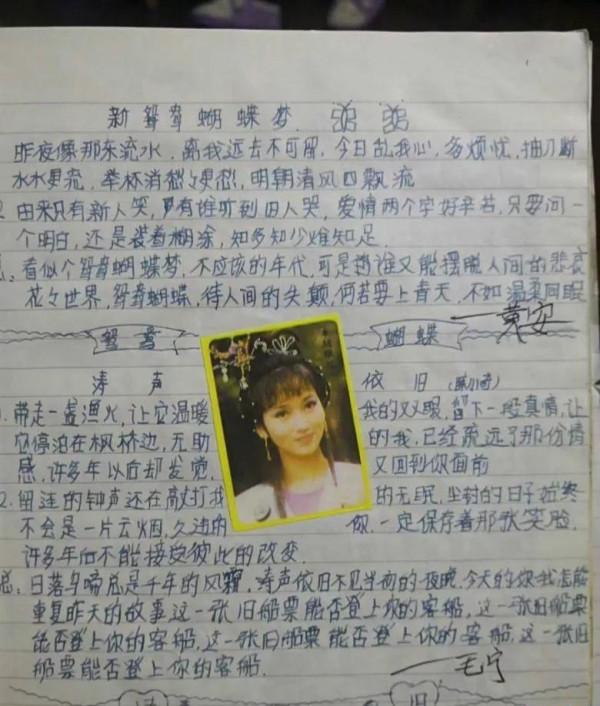 新鸳鸯蝴蝶梦
昨夜像那东流水,离我远去不可留,今日乱我心,多烦忧,抽刀断
水水更流,举杯消愁愁更愁,明朝清风四飘流
2. 由来只有新人笑,更有谁听到旧人哭,爱情两个字好辛苦,只要问一
个明白,还是装着糊涂,知多知少难知足
总:看似个鸳鸯蝴蝶梦,不应该的年代,可是谁又能摆脱人间的悲哀
花々世界,鸳鸯蝴蝶,待人间的失颠,何若要上青天,不如温柔同眠
——黄安
鸳鸯 蝴蝶
涛声 依旧
1. 带走一盏渔火,让它温暖 我的双眼,留下一段真情,让
它停泊在枫桥边,无助 的我,已经疏远了那份情
感,许多年以后却发觉, 又回到你面前
2. 留连的钟声还在敲打我 的无眠,尘封的日子始终
不会是一片云烟,久违的 你,一定保存着那张笑脸
许多年后不能接受彼此的改变
总:日落乌啼总是千年的风霜,涛声依旧不见当初的夜晚,今天的你我怎能
重复昨天的故事这一张旧船票能否登上你的客船,这一张旧船票
能否登上你的客船,这一张旧船票能否登上你的客船,这一张旧
船票能否登上你的客船.
——毛宁
旧